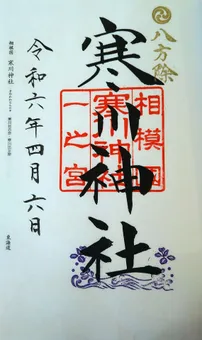 八方除
寒川神社
相模國
寒川神社
一之宮
令和六年四月六日
相模國 寒川神社